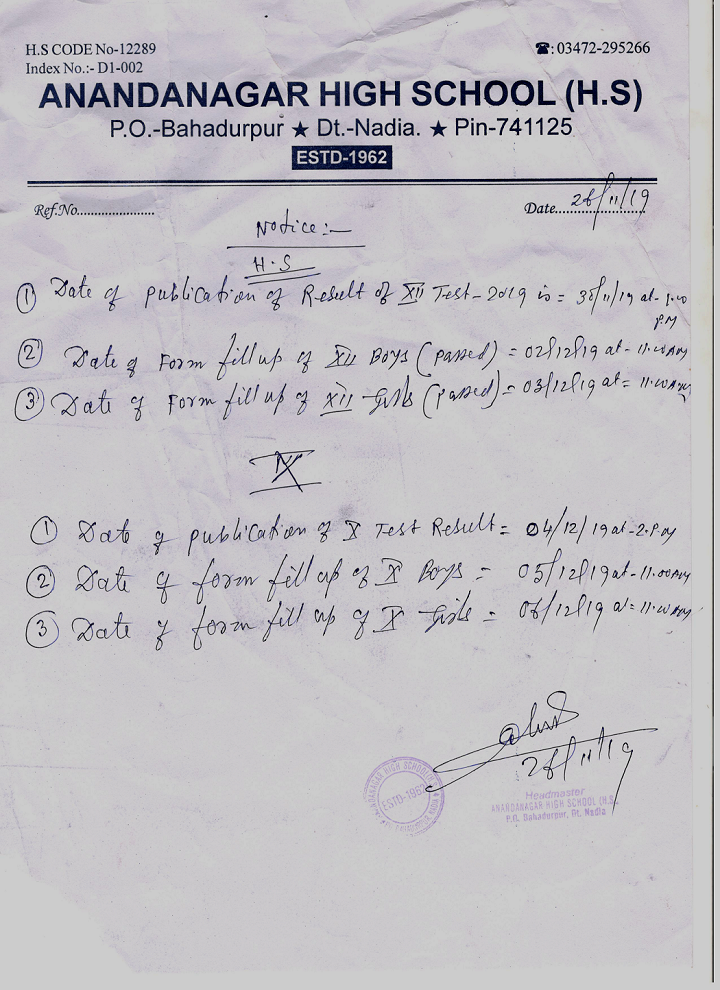 H.S CODE No-12289
☎: 03472-295266
Index No.:- D1-002
ANANDANAGAR HIGH SCHOOL (H.S)
P.O.-Bahadurpur ★ Dt.-Nadia. ★ Pin-741125
ESTD-1962
Ref.No.....................
Date.. 28/11/19
Notice:—
H.S
① Date of publication of Result of XII Test-2019 is = 30/11/19 at- 1.00
P.M
② Date of Form fill up of XII Boys (passed) = 02/12/19 at- 11.00AM
③ Date of Form fill up of XII Girls (passed) = 03/12/19 at = 11.00AM
X
① Date of publication of X Test Result = 04/12/19 at-2.P.M
② Date of form fill up of X Boys = 05/12/19 at- 11.00AM
③ Date of form fill up of X Girls = 06/12/19 at = 11.00AM
28/11/19
ANANDANAGAR HIGH SCHOOL
ESTD-1962
Headmaster
ANANDANAGAR HIGH SCHOOL (H.S.
P.O. Bahadurpur, Dt. Nadia